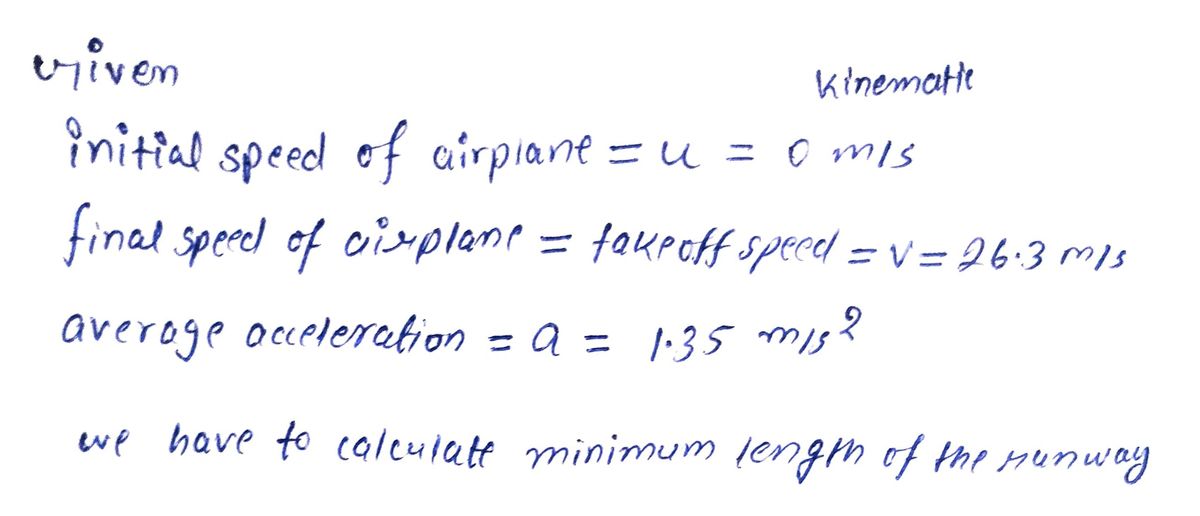 Given
Kinematic
initial speed of airplane = u = 0 m/s
final speed of airplane = takeoff speed = v = 26.3 m/s
average acceleration = a = 1.35 m/s²
we have to calculate minimum length of the runway